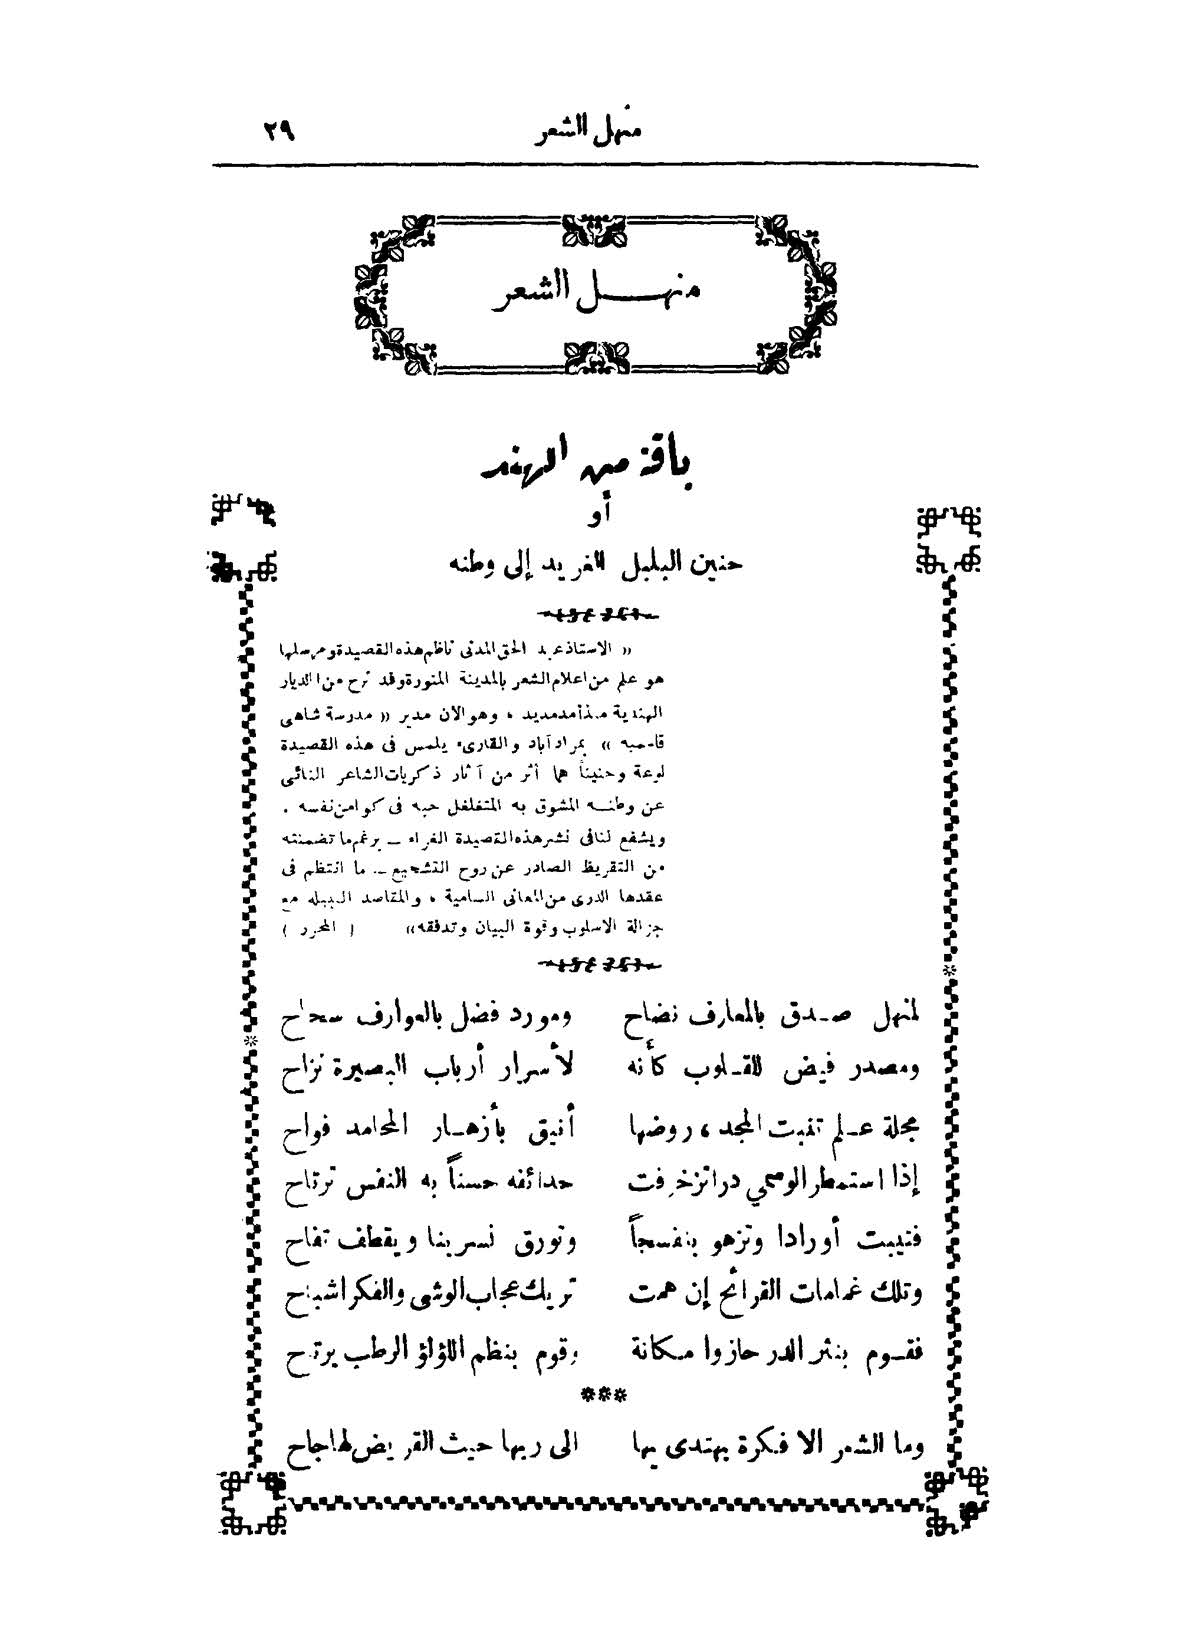 منهل الشعر ٢٩
منهل الشعر
باقة من الهند
أو
حنين البلبل الغريد إلى وطنه
« الاستاذ عبد الحق المدني ناظم هذه القصيدة ومرسلها
هو علم من اعلام الشعر بالمدينة المنورة وقد نزح من الديار
الهندية منذ أمد مديد ، وهو الان مدير « مدرسة شاهى
قاسميه » بمراد آباد والقارىء يلمس فى هذه القصيدة
لوعة وحنيناً هما أثر من آثار ذكريات الشاعر النائى
عن وطنه المشوق به المتغلغل حبه فى كوامن نفسه .
ويشفع لنا فى نشر هذه القصيدة الغراء — برغم ما تضمنته
من التقريظ الصادر عن روح التشجيع — ما انتظم فى
عقدها الدرى من المعانى السامية ، والمقاصد النبيله مع
جزالة الاسلوب وقوة البيان وتدفقه» ( المحرر )
لمنهل صدق بالمعارف نضاح ومورد فضل بالعوارف سحاح
ومصدر فيض للقلوب كأنه لأسرار أرباب البصيرة نزاح
مجلة علم تنبت المجد ، روضها أنيق بأزهار المحامد فواح
إذا استمطر الوسمي درا تزخرفت حدائقه حسناً به النفس ترتاح
فتيبت أورادا وتزهو بنفسجاً وتورق نسرينا ويقطف تفاح
وتلك غمامات القرائح إن همت تريك عجاب الوشى والفكر اشباح
فقوم بنثر الدر حازوا مكانة وقوم بنظم اللؤلؤ الرطب يرتاح
***
وما الشعر الا فكرة يهتدى بها الى ربها حيث القريض لها جاح